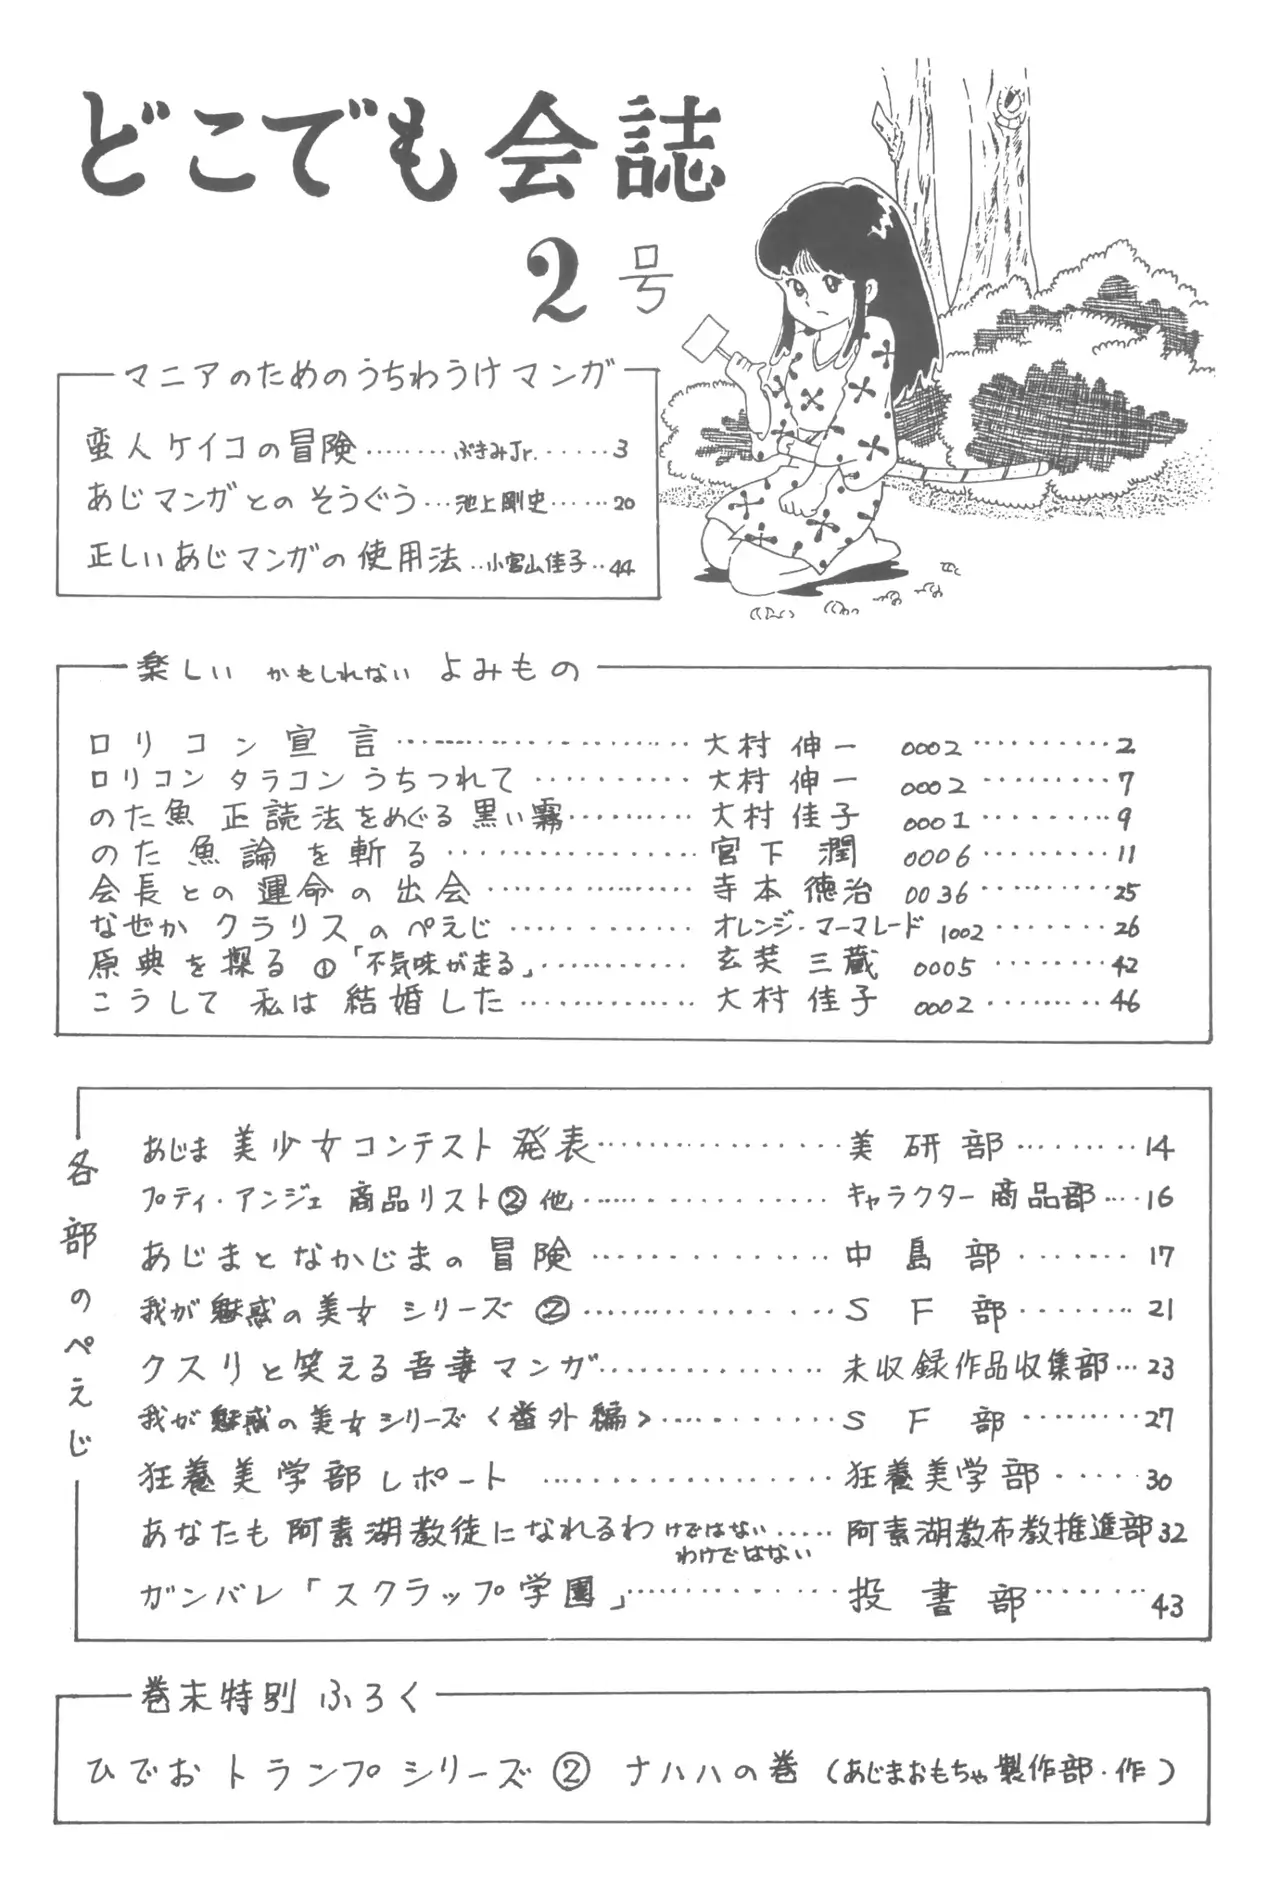 どこでも会誌
2号
マニアのためのうちわうけマンガ
蛮人ケイコの冒険………ぶきみJr.……3
あじマンガとのそうぐう…池上剛史……20
正しいあじマンガの使用法..小宮山佳子..44
楽しいかもしれないよみもの
ロリコン宣言……………………大村伸一 0002………2
ロリコンタラコンうちつれて…………大村伸一 0002………7
のた魚正読法をめぐる黒い霧…………大村佳子 0001………9
のた魚論を斬る…………………宮下潤 0006………11
会長との運命の出会………………寺本徳治 0036………25
なぜかクラリスのぺえじ……………オレンジ・マーマレード 1002………26
原典を探る①「不気味が走る」…………玄奘三蔵 0005………42
こうして私は結婚した……………大村佳子 0002………46
各部のぺえじ
あじま美少女コンテスト発表………………美研部………14
プティ・アンジェ商品リスト②他………………キャラクター商品部…16
あじまとなかじまの冒険………………中島部………17
我が魅惑の美女シリーズ②………………SF部………21
クスリと笑える吾妻マンガ………………未収録作品収集部…23
我が魅惑の美女シリーズ〈番外編〉…………SF部………27
狂養美学部レポート………………狂養美学部……30
あなたも阿素湖教徒になれるわけではない……阿素湖教布教推進部32
わけではない
ガンバレ「スクラップ学園」………………投書部………43
巻末特別ふろく
ひでおトランプシリーズ②ナハハの巻(あじまおもちゃ製作部・作)